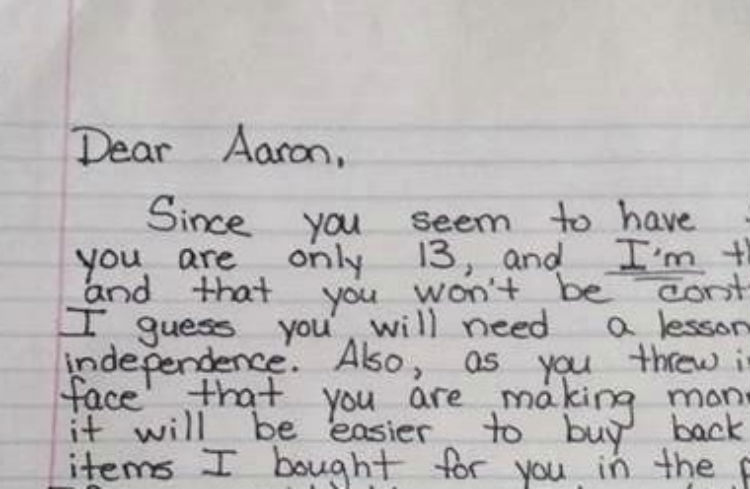 Dear Aaron,
Since you seem to have
you are only 13, and I'm
and that you won't be
I guess you will need a lesson
independence. Also, as you threw
face that you are making
it will be easier to buy back
items I bought for you in the